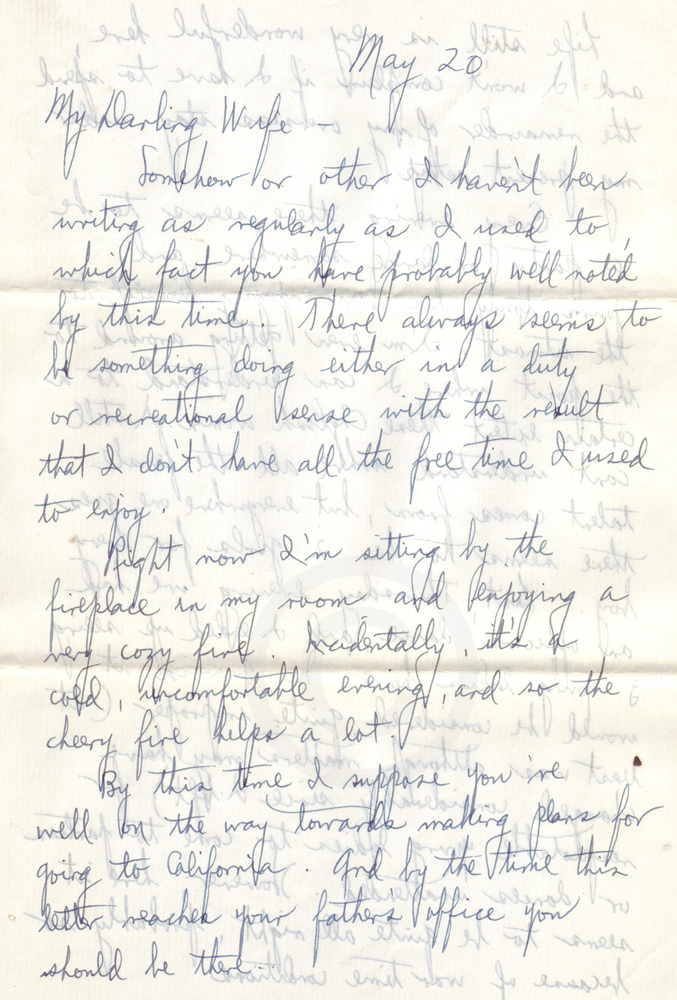 May 20
My Darling Wife —
Somehow or other I haven't been
writing as regularly as I used to,
which fact you have probably well noted
by this time. There always seems to
be something doing either in a duty
or recreational sense with the result
that I don't have all the free time I used
to enjoy.
Right now I'm sitting by the
fireplace in my room and enjoying a
very cozy fire. Incidentally, it's a
cold, uncomfortable evening, and so the
cheery fire helps a lot.
By this time I suppose you're
well on the way towards making plans for
going to California. And by the time this
letter reaches your father's office you
should be there.